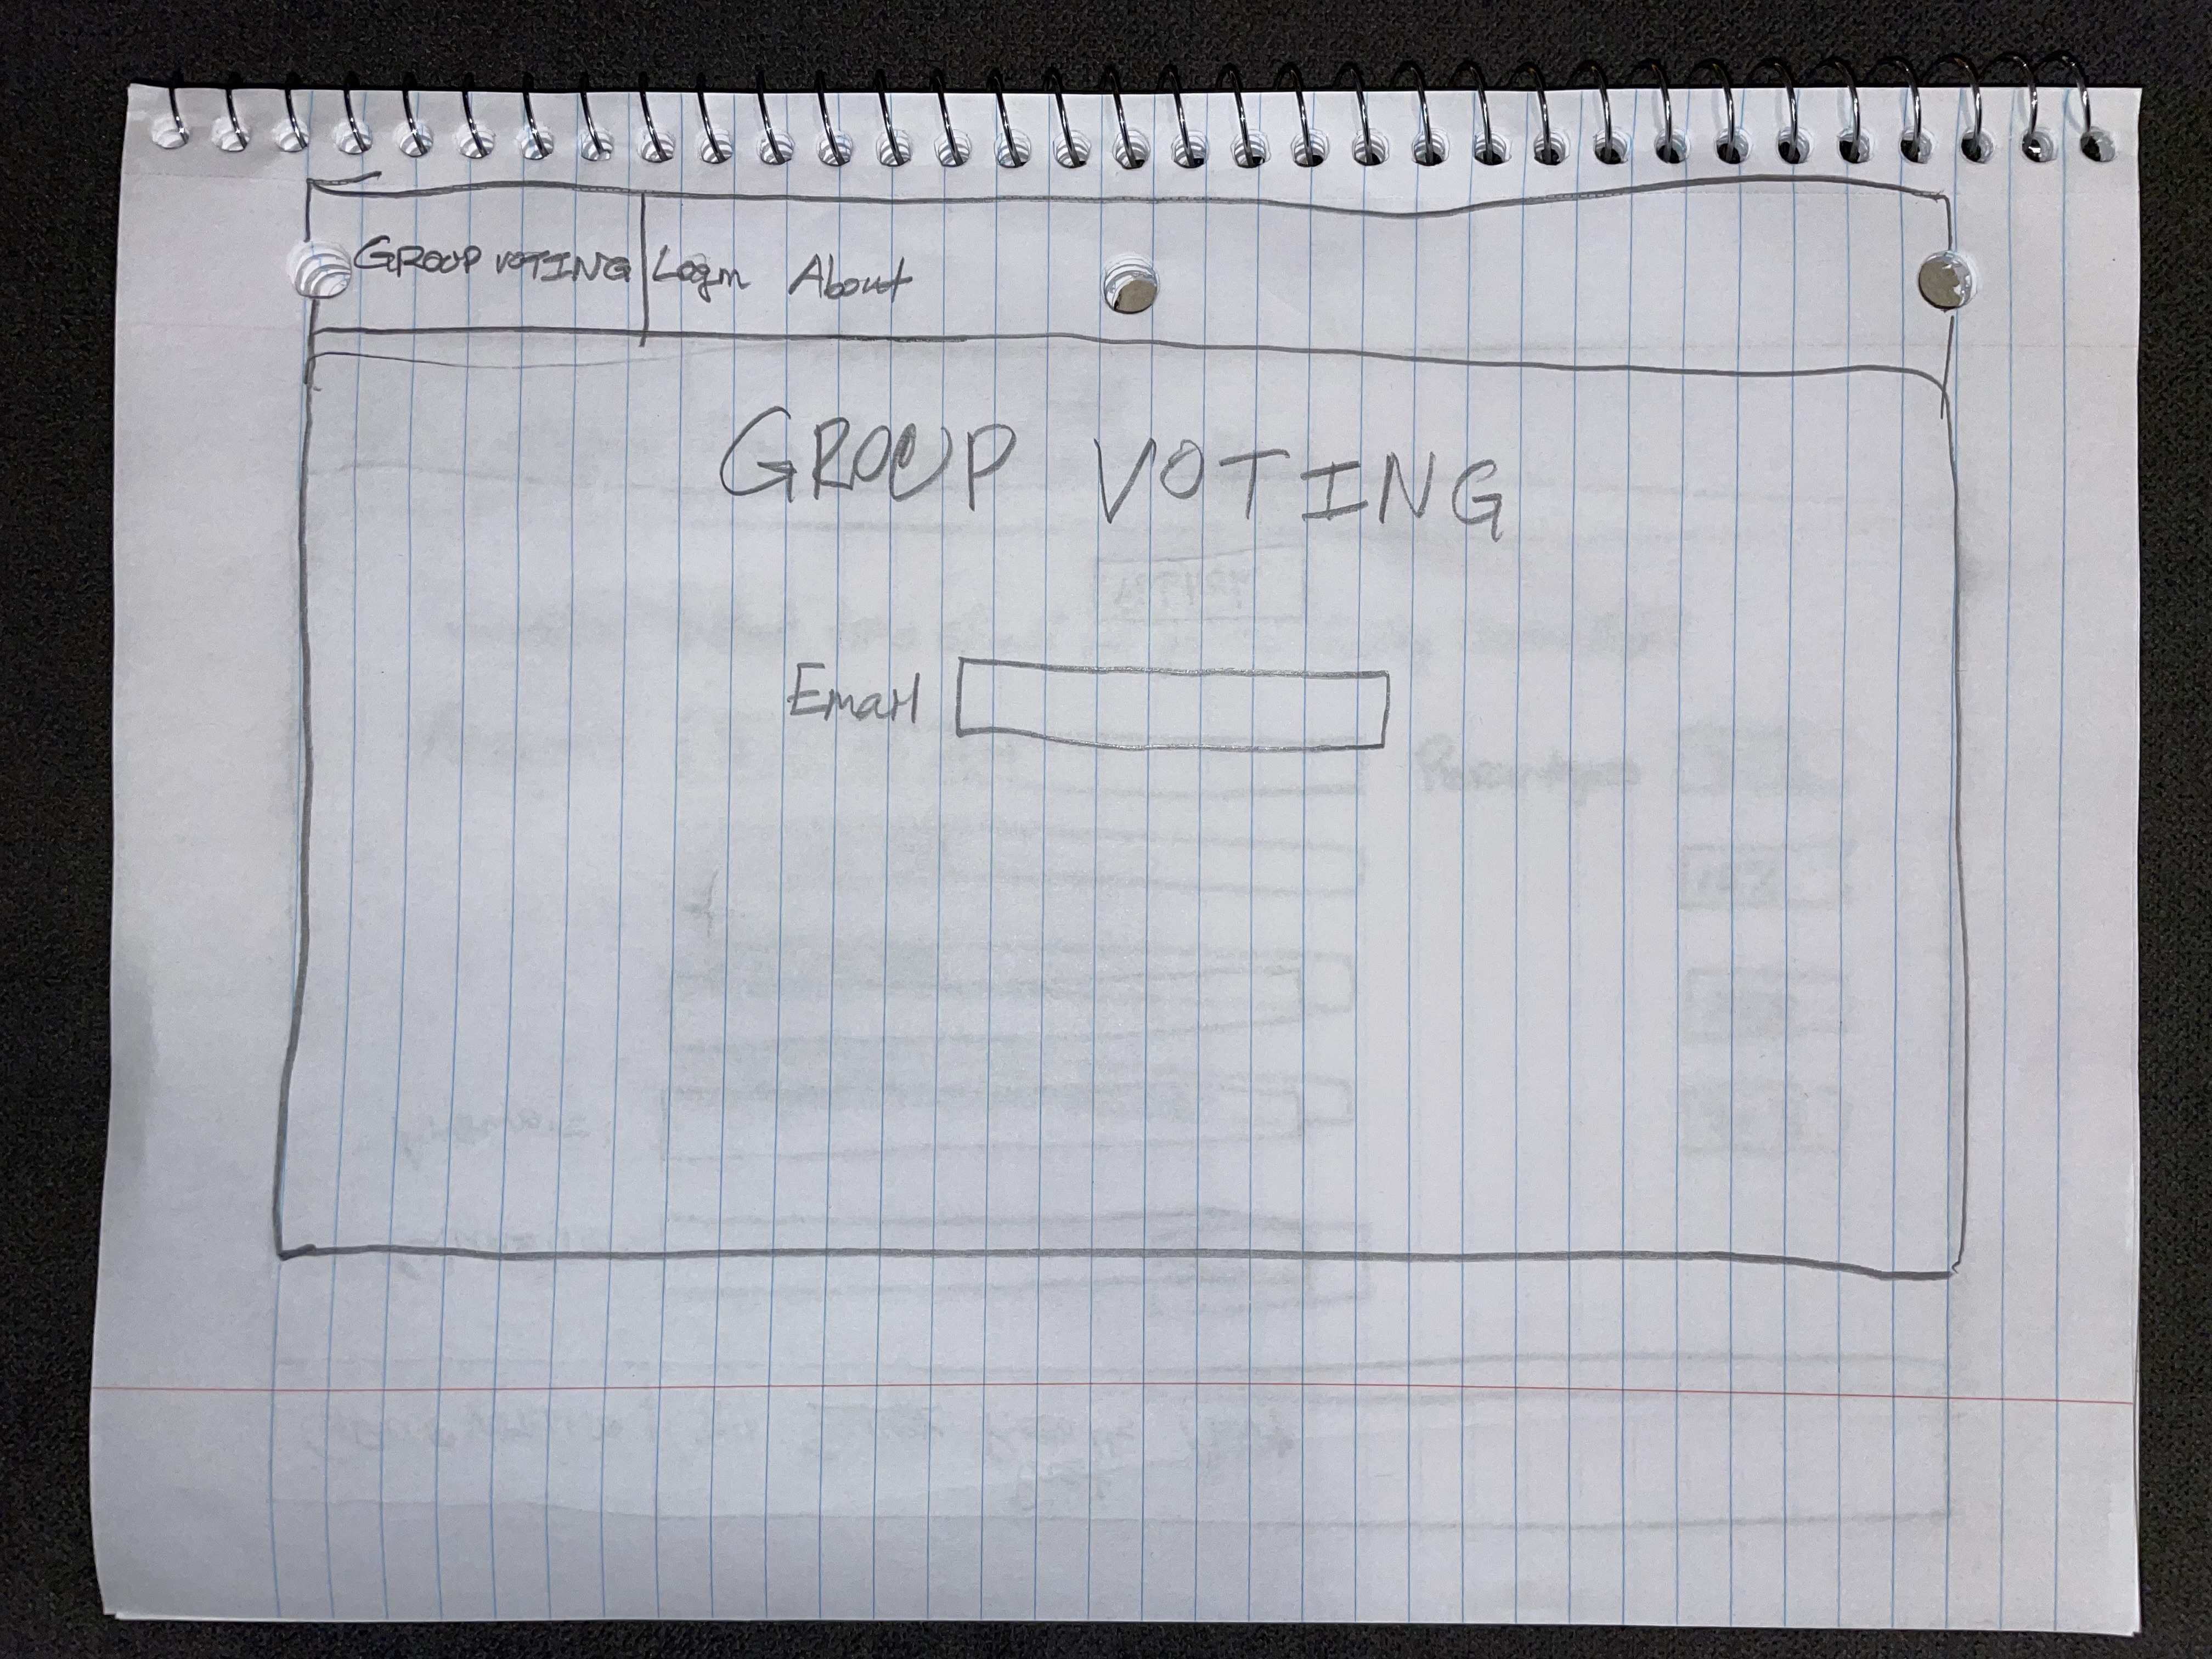 GROUP VOTING Login About
GROUP VOTING
Email